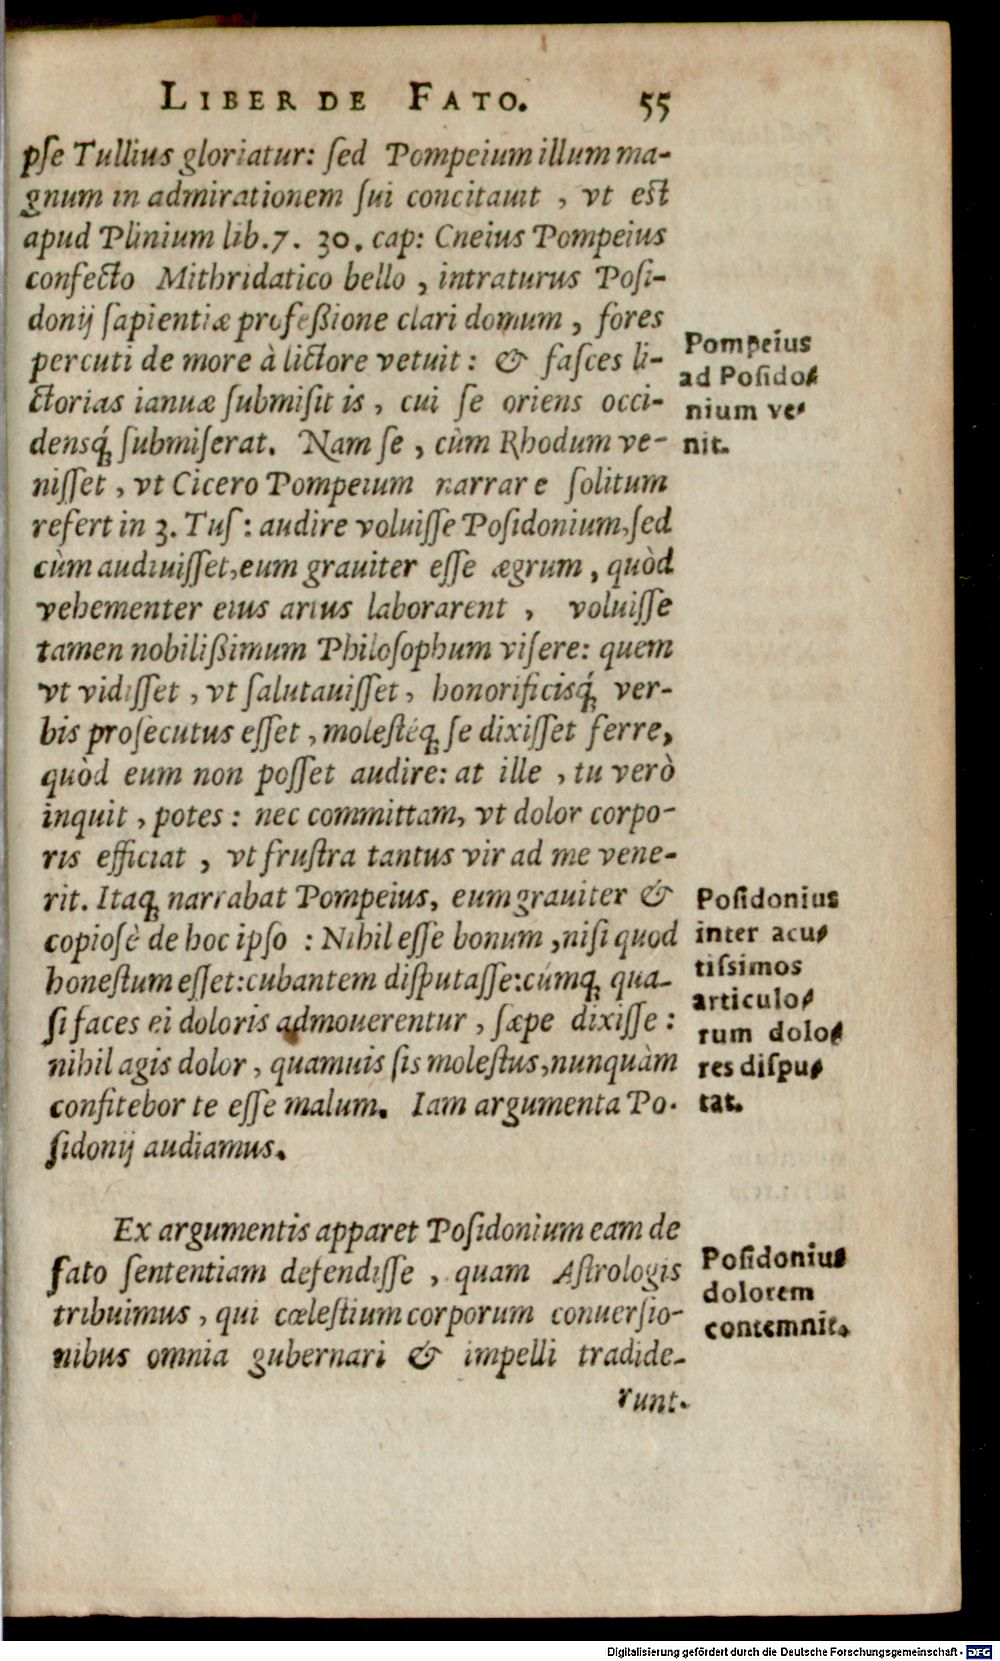 LIBER DE FATO. 55
pſe Tullius gloriatur: ſed Pompeium illum ma-
gnum in admirationem ſui concitauit , vt eſt
apud Plinium lib.7. 30. cap: Cneius Pompeius
confecto Mithridatico bello , intraturus Poſi-
donij ſapientiæ profeßione clari domum , fores
percuti de more à lictore vetuit : & faſces li-
ctorias ianuæ ſubmiſit is , cui ſe oriens occi-
densq́; ſubmiſerat. Nam ſe , cùm Rhodum ve-
niſſet , vt Cicero Pompeium narrare ſolitum
refert in 3. Tuſ : audire voluiſſe Poſidonium, ſed
cùm audiuiſſet, eum grauiter eſſe ægrum , quòd
vehementer eius artus laborarent , voluiſſe
tamen nobilißimum Philoſophum viſere: quem
vt vidiſſet , vt ſalutauiſſet , honorificisq́; ver-
bis proſecutus eſſet , moleſtéq; ſe dixiſſet ferre,
quòd eum non poſſet audire: at ille , tu verò
inquit , potes : nec committam, vt dolor corpo-
ris efficiat , vt fruſtra tantus vir ad me vene-
rit. Itaq; narrabat Pompeius, eum grauiter &
copioſè de hoc ipſo : Nihil eſſe bonum , niſi quod
honeſtum eſſet: cubantem diſputaſſe: cúmq; qua-
ſi faces ei doloris admouerentur , ſæpe dixiſſe :
nihil agis dolor , quamuis ſis moleſtus, nunquàm
confitebor te eſſe malum. Iam argumenta Po-
ſidonij audiamus.
Ex argumentis apparet Poſidonium eam de
fato ſententiam defendiſſe , quam Aſtrologis
tribuimus , qui cœleſtium corporum conuerſio-
nibus omnia gubernari & impelli tradide-
runt.
Pompeius
ad Poſido-
nium ve-
nit.
Poſidonius
inter acu-
tiſsimos
articulo-
rum dolo-
res diſpu-
tat.
Poſidonius
dolorem
contemnit.
Digitalisierung gefördert durch die Deutsche Forschungsgemeinschaft - DFG